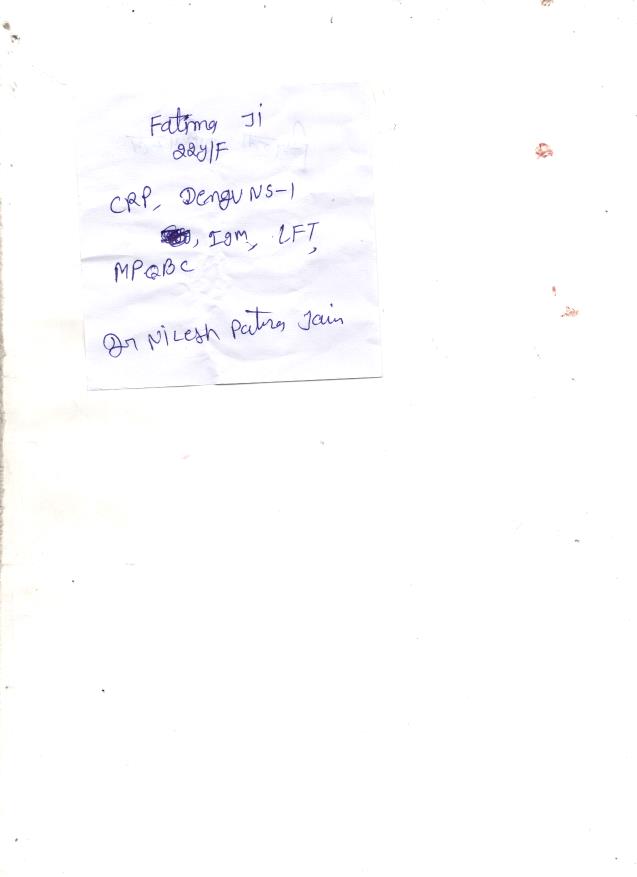 Fatima Ji
22y/F
CRP, Dengu NS-1
, Igm, LFT,
MPQBC
Dr Nilesh Jain